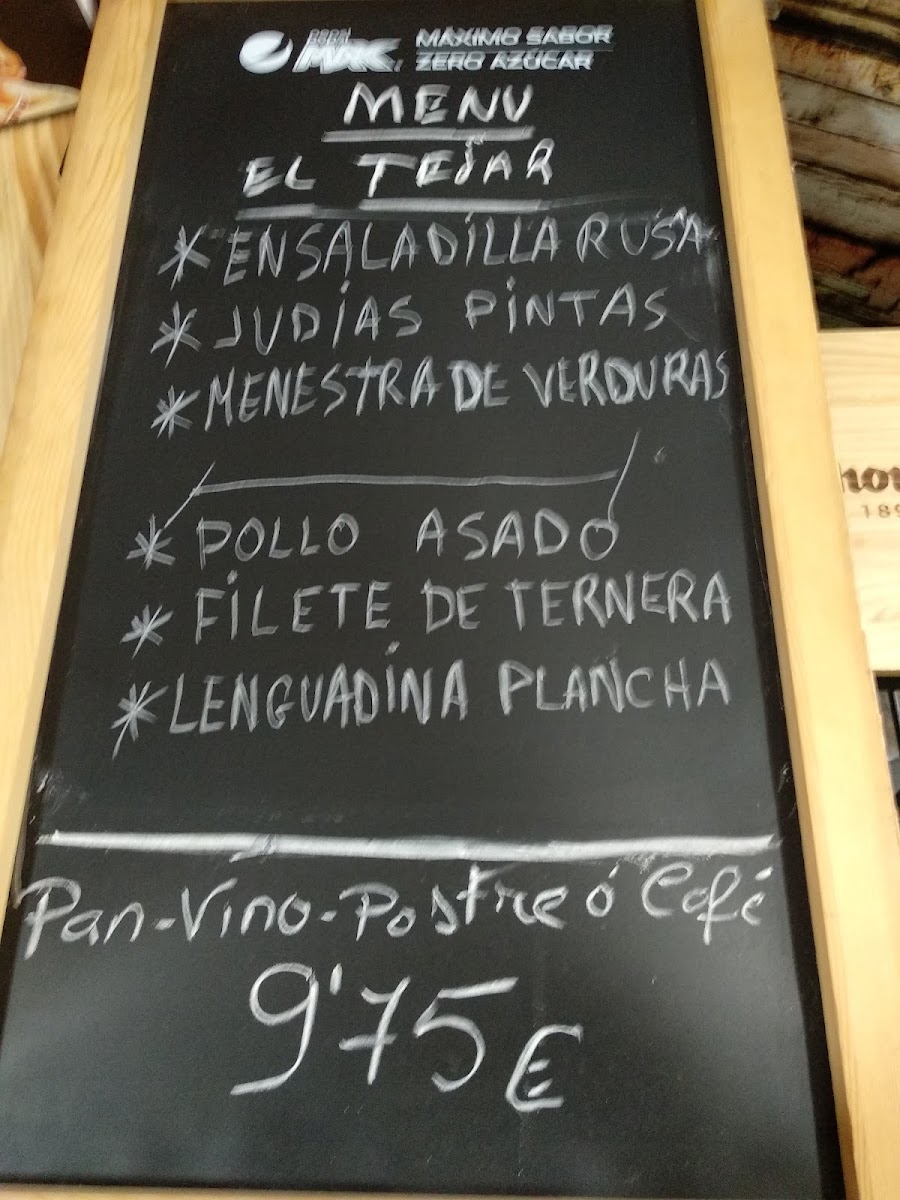 pepsi
MAX.
MÁXIMO SABOR
ZERO AZÚCAR
MENU
EL TEJAR
* ENSALADILLA RUSA
* JUDIAS PINTAS
* MENESTRA DE VERDURAS
* POLLO ASADO
* FILETE DE TERNERA
* LENGUADINA PLANCHA
Pan-Vino-Postre ó Café
9'75€